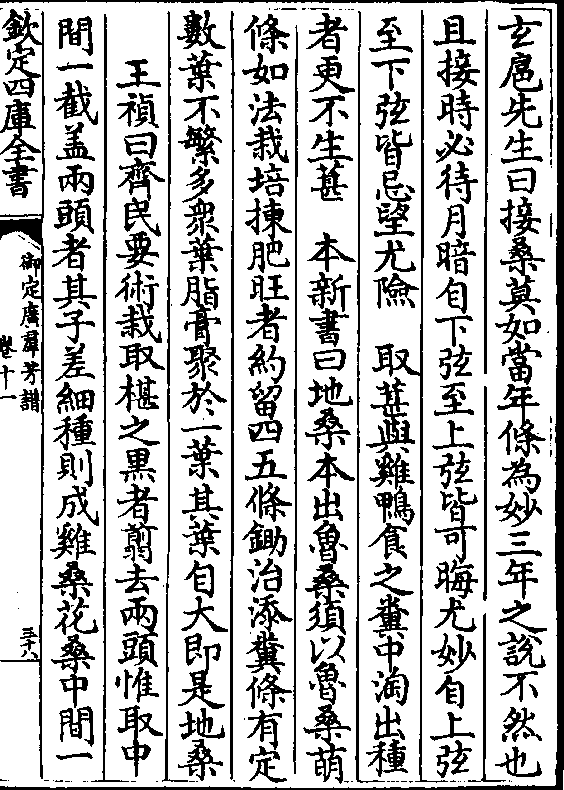 玄扈先生曰接桑莫如當年條為妙三年之說不然也
且接時必待月暗自下弦至上弦皆可晦尤妙自上弦
至下弦皆忌望尤險　取葚與雞鴨食之糞中淘出種
者更不生葚　本新書曰地桑本出魯桑須以魯桑萌
條如法栽培揀肥旺者約留四五條鋤治添糞條有定
數葉不繁多衆葉脂膏聚於一葉其葉自大即是地桑
王禎曰齊民要術栽取椹之黑者翦去兩頭惟取中
間一截盖兩頭者其子差細種則成雞桑花桑中間一
欽定四庫全書
御定廣羣芳譜
卷十一
三十八